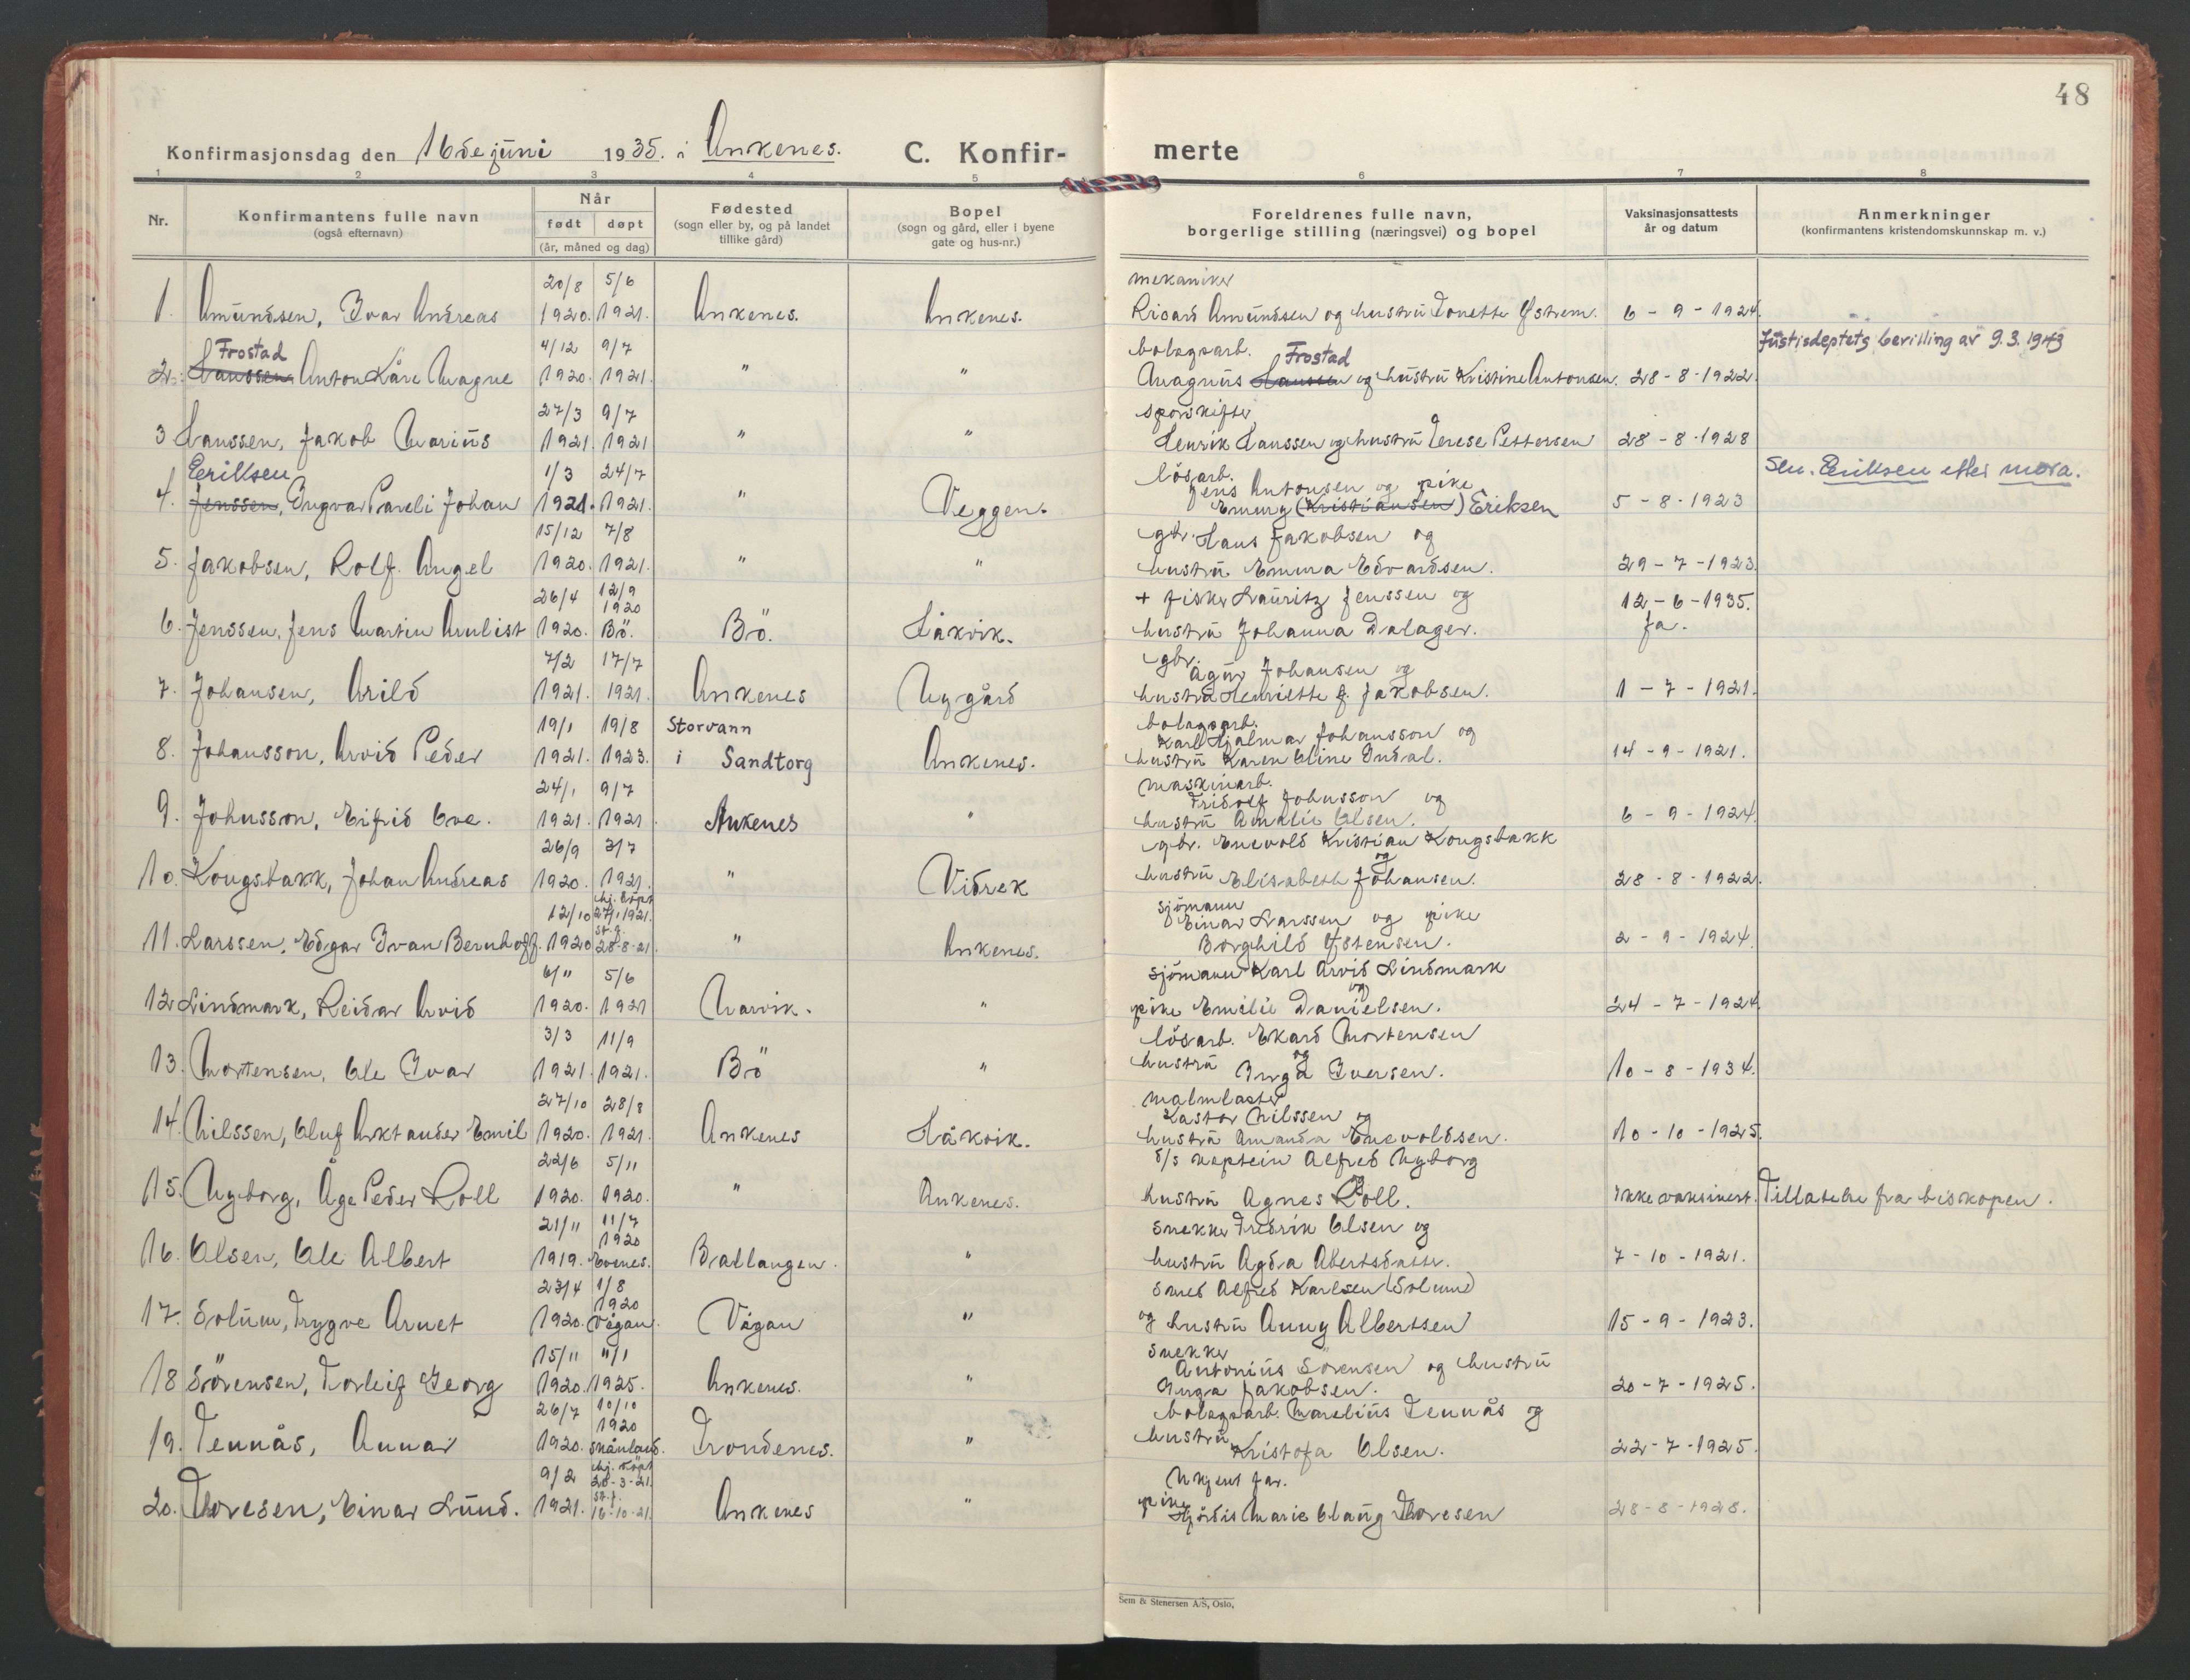 48
Konfirmasjonsdag den 16de juni 1935. i Ankenes. C. Konfirmerte
1 2 3 4 5 6 7 8
Nr. Konfirmantens fulle navn (også efternavn) Når født døpt (år, måned og dag) Fødested (sogn eller by, og på landet tillike gård) Bopel (sogn og gård, eller i byene gate og hus-nr.) Foreldrenes fulle navn, borgerlige stilling (næringsvei) og bopel Vaksinasjonsattests år og datum Anmerkninger (konfirmantens kristendomskunnskap m. v.)
1. Amundsen, Ivar Andreas 20/8 1920. 5/6 1921. Ankenes. Ankenes. mekaniker Ricard Amundsen og hustru Tonette Ystrem. 6 - 9 - 1924.
2. Hanssen Frostad Anton Kåre Magne 4/12 1920. 9/7 1921. " " bolagsarb. Magnus Hanssen Frostad og hustru Kristine Antonsen. 28 - 8 - 1922. Justisdeptets bevilling av 9.3.1943
3 Hanssen, Jakob Marius 27/3 1921. 9/7 1921 " " sporskifter Henrik Hanssen og hustru Terese Pettersen 28 - 8 - 1928
4. Jenssen, Eriksen Ingvar Pareli Johan 1/3 1921. 24/7 1921. " Veggen. lösarb. Jens Antonsen og pike Emmy (Kristiansen) Eriksen 5 - 8 - 1923 Sen. Eriksen etter mora.
5. Jakobsen, Rolf Angel 15/12 1920. 7/8 1921. " " gbr. Hans Jakobsen og hustru Emma Edvardsen. 29 - 7 - 1923.
6. Jenssen, Jens Martin Arnlist 26/4 1920. 12/9 1920 Bö. Bö. Håkvik. + fisker Lauritz Jenssen og hustru Johanna Dalager. 12 - 6 - 1935. Ja.
7. Johansen, Arild 7/2 1921. 17/7 1921. Ankenes Nygård gbr. Agur Johansen og hustru Henriette f. Jakobsen. 1 - 7 - 1921.
8. Johansson, Arvid Peder 19/1 1921. 19/8 1923. Storvann i Sandtorg Ankenes. bolagsarb. Karl Hjalmar Johansson og hustru Karen Oline Indal. 14 - 9 - 1921.
9. Johnsson, Eifrid Ove. 24/1 1921. 9/7 1921. Ankenes " maskinarb. Fridolf Johnsson og hustru Amalie Olsen. 6 - 9 - 1924.
10. Kongsbakk, Johan Andreas 26/9 1920. 3/7 1921. " Vidrek gbr. Enevold Kristian Kongsbakk og hustru Elisabeth Johansen. 28 - 8 - 1922.
11. Larssen, Edgar Ivan Bernhoff. 12/10 1920 hj. döpt 27/1 1921. 28-8-21. " Ankenes. sjömann Einar Larssen og pike Borghild Ystensen. 2 - 9 - 1924.
12 Lindmark, Reidar Arvid 6/11 1920. 5/6 1921 Narvik. " sjömann Karl Arvid Lindmark og pike Emilie Danielsen. 24 - 7 - 1924.
13. Mortensen, Ole Ivar 3/3 1921. 11/9 1921. Bö " lösarb. Ekard Mortensen og hustru Inga Iversen. 10 - 8 - 1934.
14. Nilssen, Oluf Arktander Emil 27/10 1920. 28/8 1921. Ankenes Håkvik. malmlaster Kastor Nilssen og hustru Amanda Enevoldsen. 10 - 10 - 1925.
15. Nyborg, Åge Peder Roll 22/6 1920. 5/11 1920. " Ankenes. d/s kaptein Alfred Nyborg og hustru Agnes Roll. Ikke vaksinert. Tillatelse fra biskopen.
16. Olsen, Ole Albert 21/11 1919. 11/7 1920 Evenes. Ballangen. " snekker Fredrik Olsen og hustru Agda Abertsdatter. 7 - 10 - 1921.
17. Solum, Trygve Arnet 23/4 1920. 1/8 1920 Vågan. Vågan " smed Alfred Karlsen (Solum) og hustru Anny Albertsen 15 - 9 - 1923.
18 Sörensen, Torleif Georg 15/11 1920. 11/1 1925. Ankenes. " snekker Antonius Sörensen og hustru Inga Jakobsen. 20 - 7 - 1925.
19. Tennås, Annar 26/7 1920. 10/10 1920 Skånland. Trondenes. " bolagsarb. Marelius Tennås og hustru Kristofa Olsen. 22 - 7 - 1925.
20. Thoresen, Einar Lund. 9/2 1921. hj. döpt 28-3-21. st. f. 16-10-21. Ankenes " Ukjent far. pike Hjördis Marie Olaug Thoresen 28 - 8 - 1928.
Sem & Stenersen A/S, Oslo.